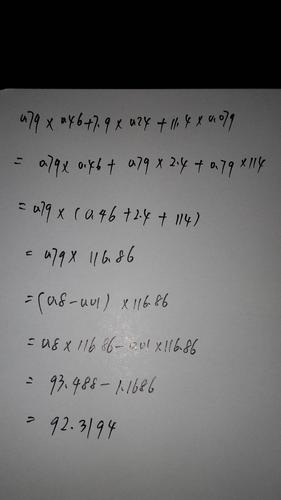 0.79 × 0.46 + 7.9 × 0.24 + 11.4 × 0.079
= 0.79 × 0.46 + 0.79 × 2.4 + 0.79 × 114
= 0.79 × (0.46 + 2.4 + 114)
= 0.79 × 116.86
= (0.8 - 0.01) × 116.86
= 0.8 × 116.86 - 0.01 × 116.86
= 93.488 - 1.1686
= 92.3194